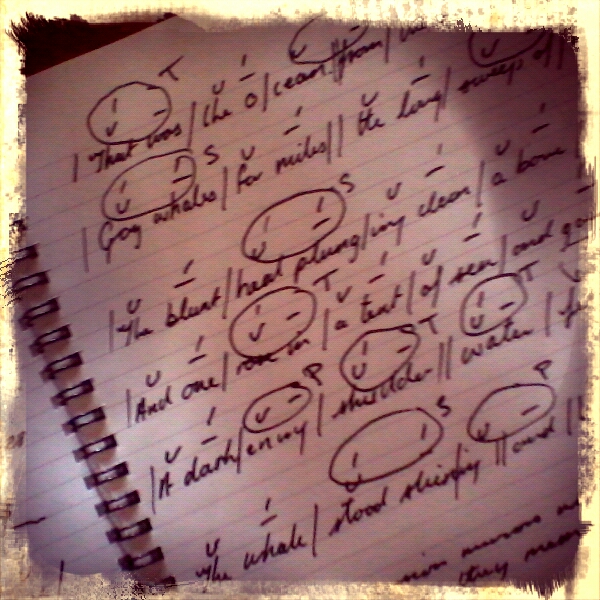 T
| That was | the o|cean || from
S
| Gog whales | for miles || the long | sweep of ||
S
| The blunt | head plung|ing clean | a bone
T
| And one | | a tent | of sea | and
P T T
| A dark | envoy | shudder || water |
S P
The whale | stood || and |
they